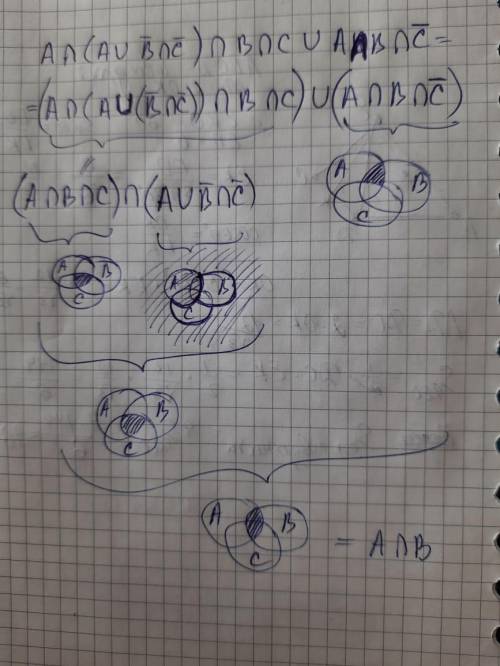 A∩(A∪B̅∩C̅)∩B∩C∪A∩B∩C̅=
=(A∩(A∪(B̅∩C̅))∩B∩C)∪(A∩B∩C̅)
(A∩B∩C)∩(A∪B̅∩C̅)
A B C
A B C
A B C
A B C
A B C
= A∩B